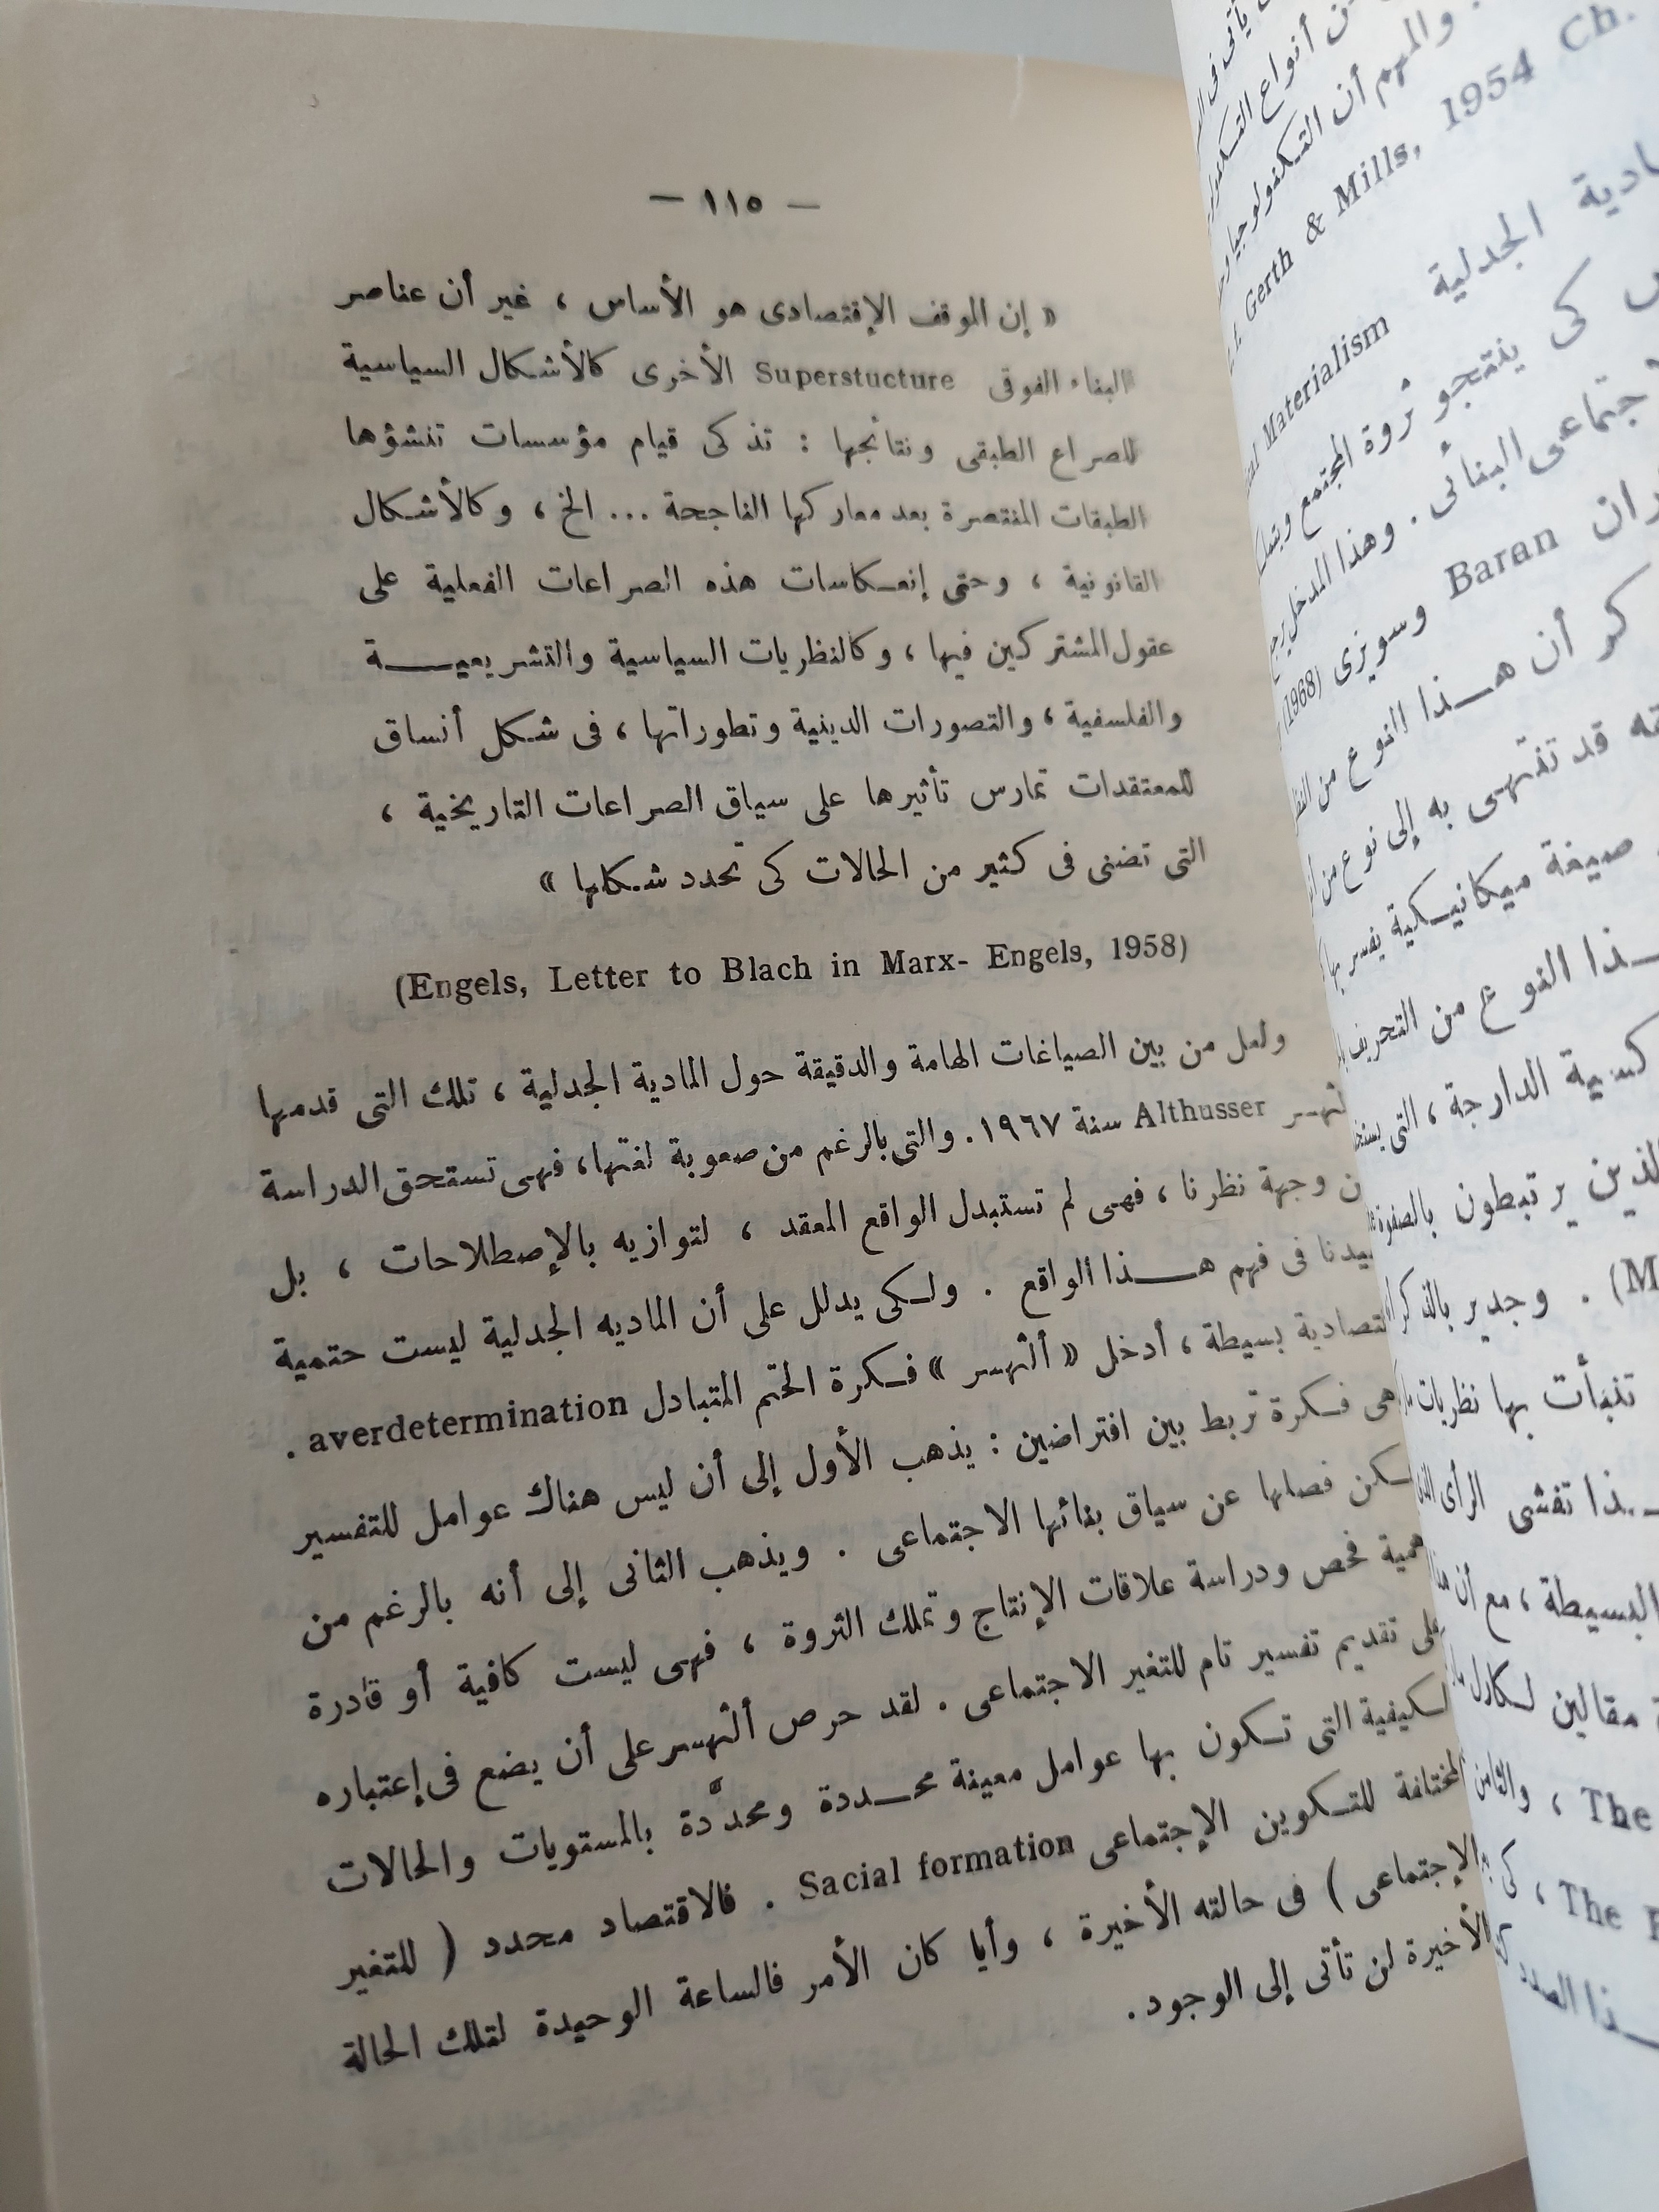 — ١١٥ —
« إن الموقف الإقتصادى هو الأساس ، غير أن عناصر
البناء الفوقى Superstucture الأخرى كالأشكال السياسية
للصراع الطبقى ونتائجها : تذكى قيام مؤسسات تنشؤها
الطبقات المنتصرة بعد معاركها الناجحة ... الخ ، وكالأشكال
القانونية ، وحتى إنعكاسات هذه الصراعات الفعلية على
عقول المشتركين فيها ، وكالنظريات السياسية والتشريعية
والفلسفية ، والتصورات الدينية وتطوراتها ، فى شكل أنساق
للمعتقدات تمارس تأثيرها على سياق الصراعات التاريخية ،
التى تضنى فى كثير من الحالات كى تحدد شكلها »
(Engels, Letter to Blach in Marx- Engels, 1958)
ولعل من بين الصياغات الهامة والدقيقة حول المادية الجدلية ، تلك التى قدمها
Althusser سنة ١٩٦٧ . والتى بالرغم من صعوبة لغتها ، فهى تستحق الدراسة
وجهة نظرنا ، فهى لم تستبدل الواقع المعقد ، لتوازيه بالإصطلاحات ، بل
فى فهم هذا الواقع . ولكى يدلل على أن الماديه الجدلية ليست حتمية
بسيطة ، أدخل « ألثهسر » فكرة الحتم المتبادل averdetermination .
هى فكرة تربط بين افتراضين : يذهب الأول إلى أن ليس هناك عوامل للتفسير
فصلها عن سياق بنائها الاجتماعى . ويذهب الثانى إلى أنه بالرغم من
فحص ودراسة علاقات الإنتاج وتملك الثروة ، فهى ليست كافية أو قادرة
على تقديم تفسير تام للتغير الاجتماعى . لقد حرص ألثهسر على أن يضع فى إعتباره
التى تكون بها عوامل معينة محددة ومحدَّدة بالمستويات والحالات
المختلفة للتكوين الإجتماعى Sacial formation . فالاقتصاد محدد ( للتغير
الإجتماعى ) فى حالته الأخيرة ، وأيا كان الأمر فالساعة الوحيدة لتلك الحالة
الأخيرة لن تأتى إلى الوجود .
أنواع
والمهم أن التكنولوجيا
Gerth & Mills, 1954 Ch.
الجدلية Materialism
كى ينتجو ثروة المجتمع
البنائى . وهذا المدخل
Baran وسويزى (1968)
أن هذا النوع من
قد تنتهى به إلى نوع من
صيغة ميكانيكية يفسر بها
النوع من التحريف
الدارجة ، التى
يرتبطون بالصفوة
. وجدير بالذكر
تنبأت بها نظريات
تفشى الرأى
البسيطة ، مع أن
مقالين لكارل
The ، والثامن
The ، كى
الصدد